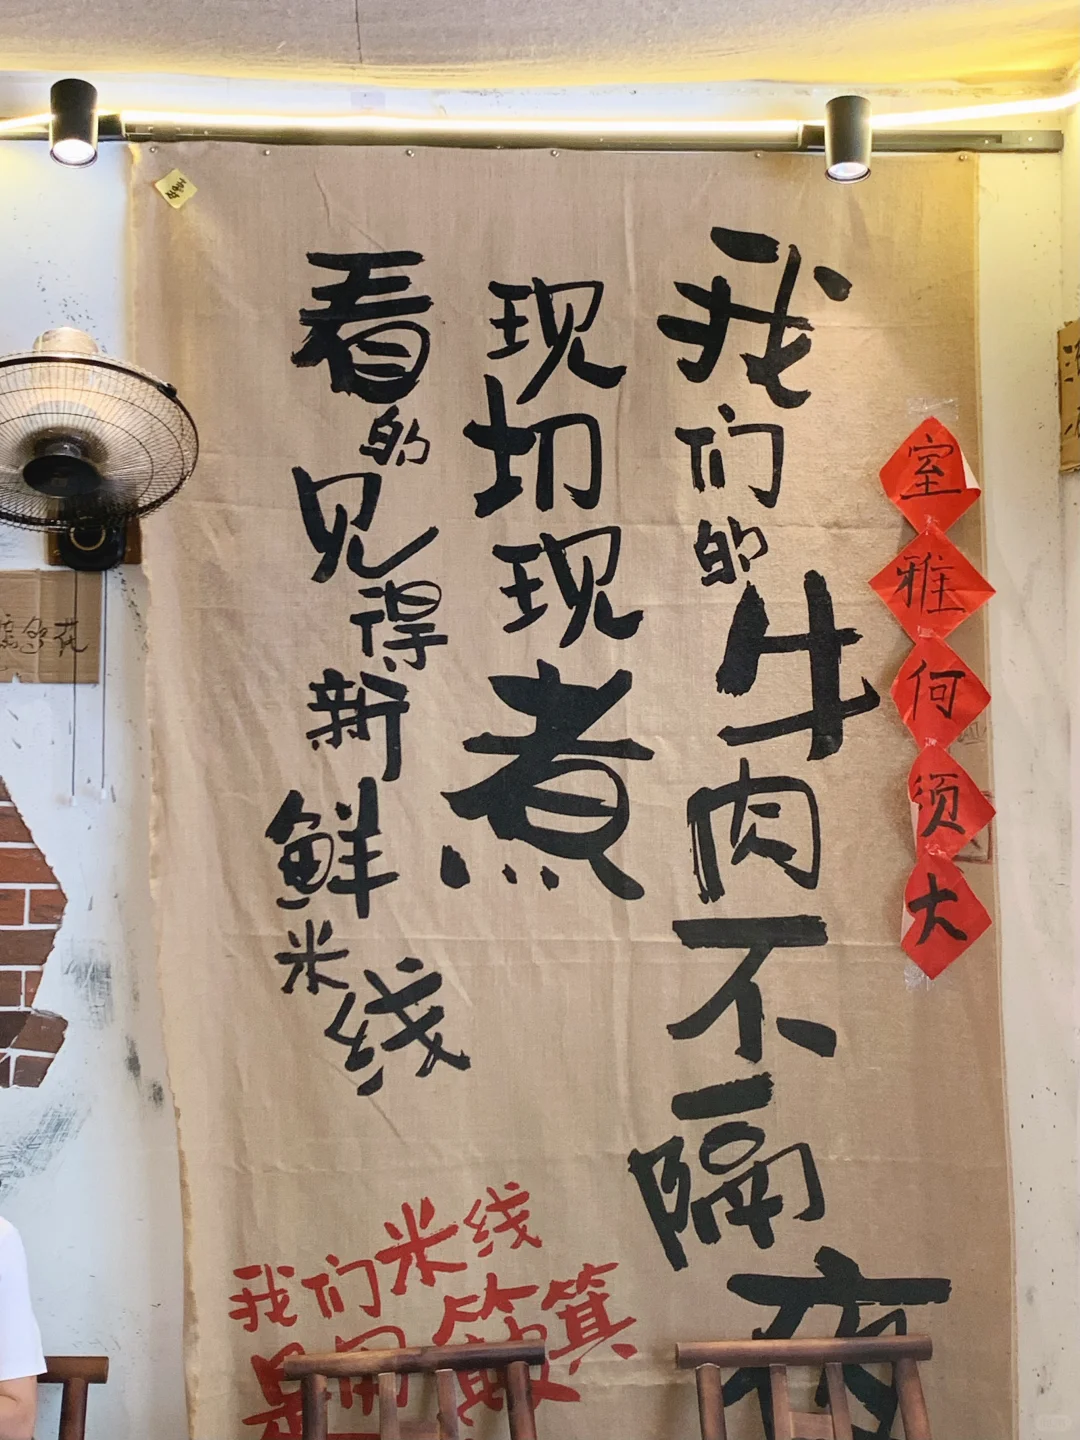 室雅何须大
我们的牛肉不隔夜
现切现煮
看的见得新鲜米线
我们米线
是用簸箕